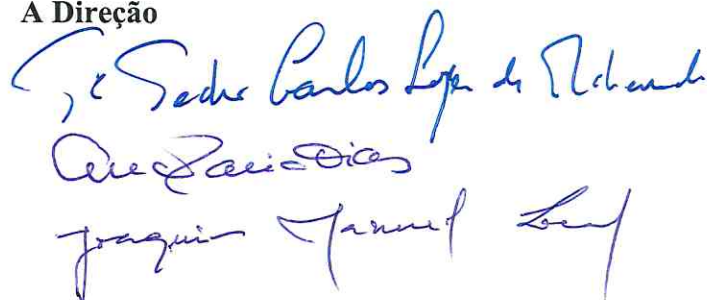 A Direção
Pedro Carlos Lopes de Miranda
Ana Maria Dias
Joaquim Manuel